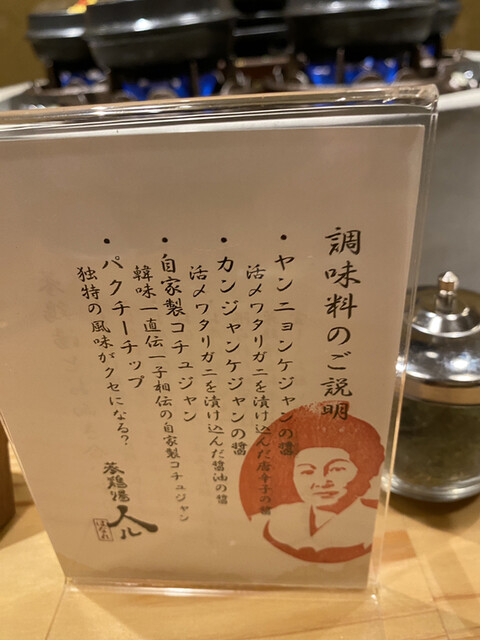 調味料のご説明
・ヤンニョンケジャンの醤
活〆ワタリガニを漬け込んだ唐辛子の醤
・カンジャンケジャンの醤
活〆ワタリガニを漬け込んだ醤油の醤
・自家製コチュジャン
韓味一直伝一子相伝の自家製コチュジャン
・パクチーチップ
独特の風味がクセになる？
参鶏湯
人ル
はなれ